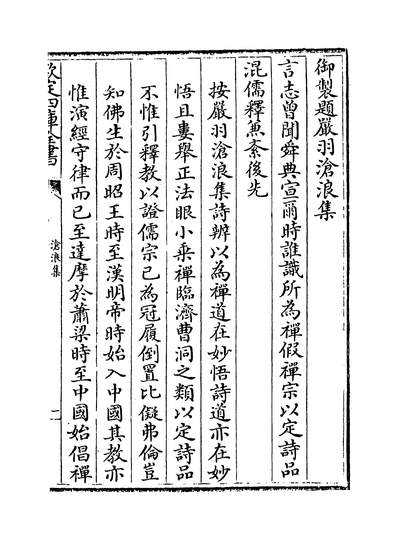 御製題嚴羽滄浪集
言志曾聞舜典宣爾時誰識所為禪假禪宗以定詩品
混儒釋兼紊後先
按嚴羽滄浪集詩辨以為禪道在妙悟詩道亦在妙
悟且婁舉正法眼小乗禪臨濟曹洞之類以定詩品
不惟引釋教以證儒宗已為冠履倒置比儗弗倫豈
知佛生於周昭王時至漢明帝時始入中國其教亦
惟演經守律而已至達摩於蕭梁時至中國始倡禪
欽定四庫全書
滄浪集
二